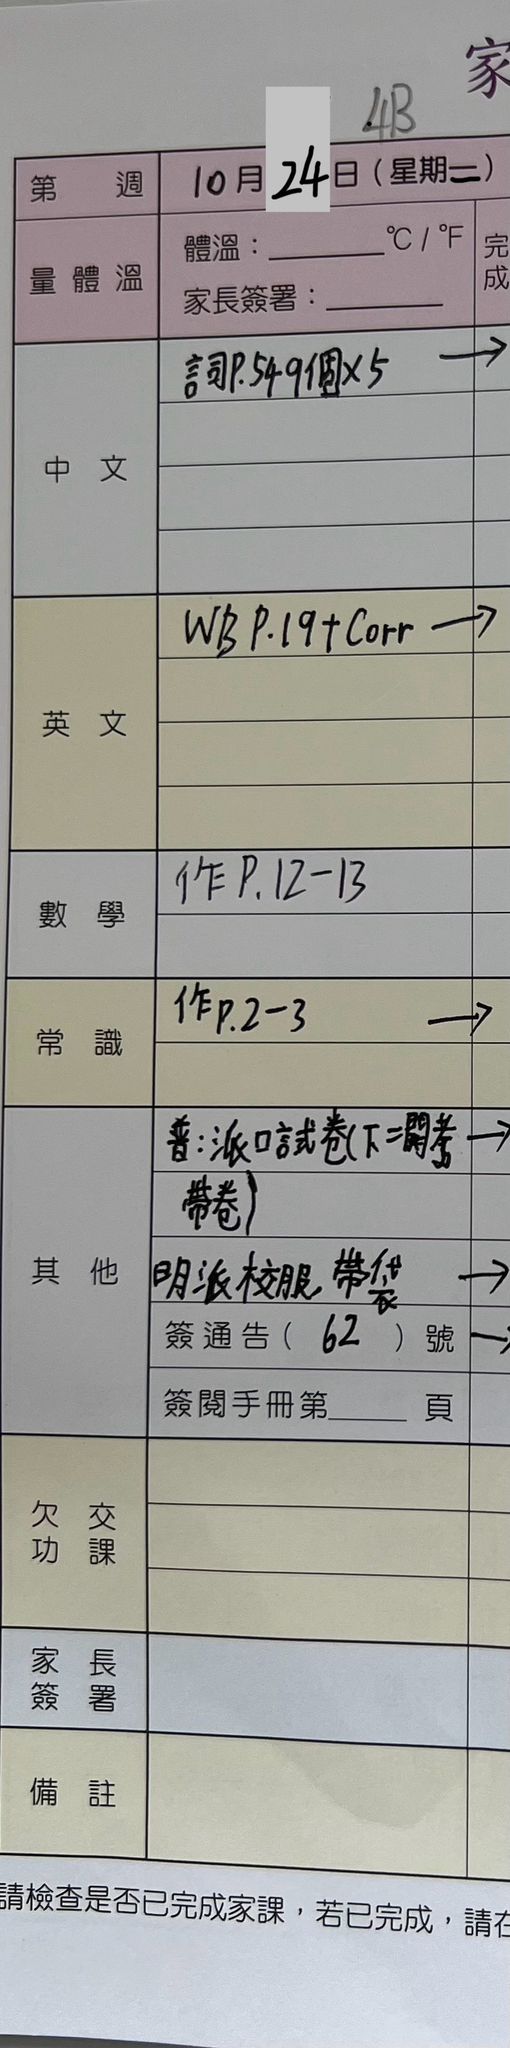 家
4B
第 週 10月24日(星期二)
量體溫 體溫：______°C / °F 完成
家長簽署：______
中文 詞P.54 9個×5 →
英文 WB P.19+Corr →
數學 作P.12-13
常識 作P.2-3 →
其他 普:派口試卷(下二開考 →
帶卷)
明派校服,帶袋 →
簽通告( 62 )號 →
簽閱手冊第____頁
欠交功課
家長簽署
備註
請檢查是否已完成家課，若已完成，請在